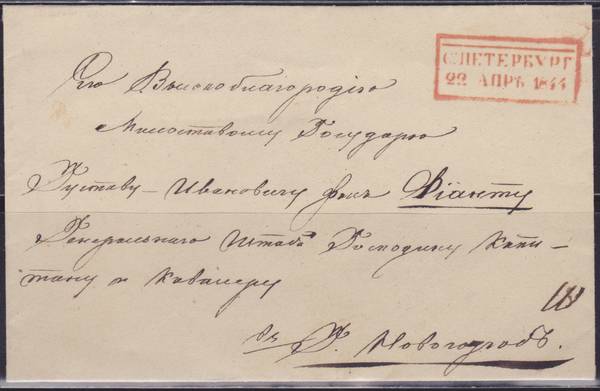 С.ПЕТЕРБУРГ
22 АПРѢ 1844
Его Высокоблагородію
Милостивому Государю
Густаву Ивановичу фонъ
Генеральнаго Штаба Господину Капи-
тану и Кавалеру
въ Г. Новогородъ.